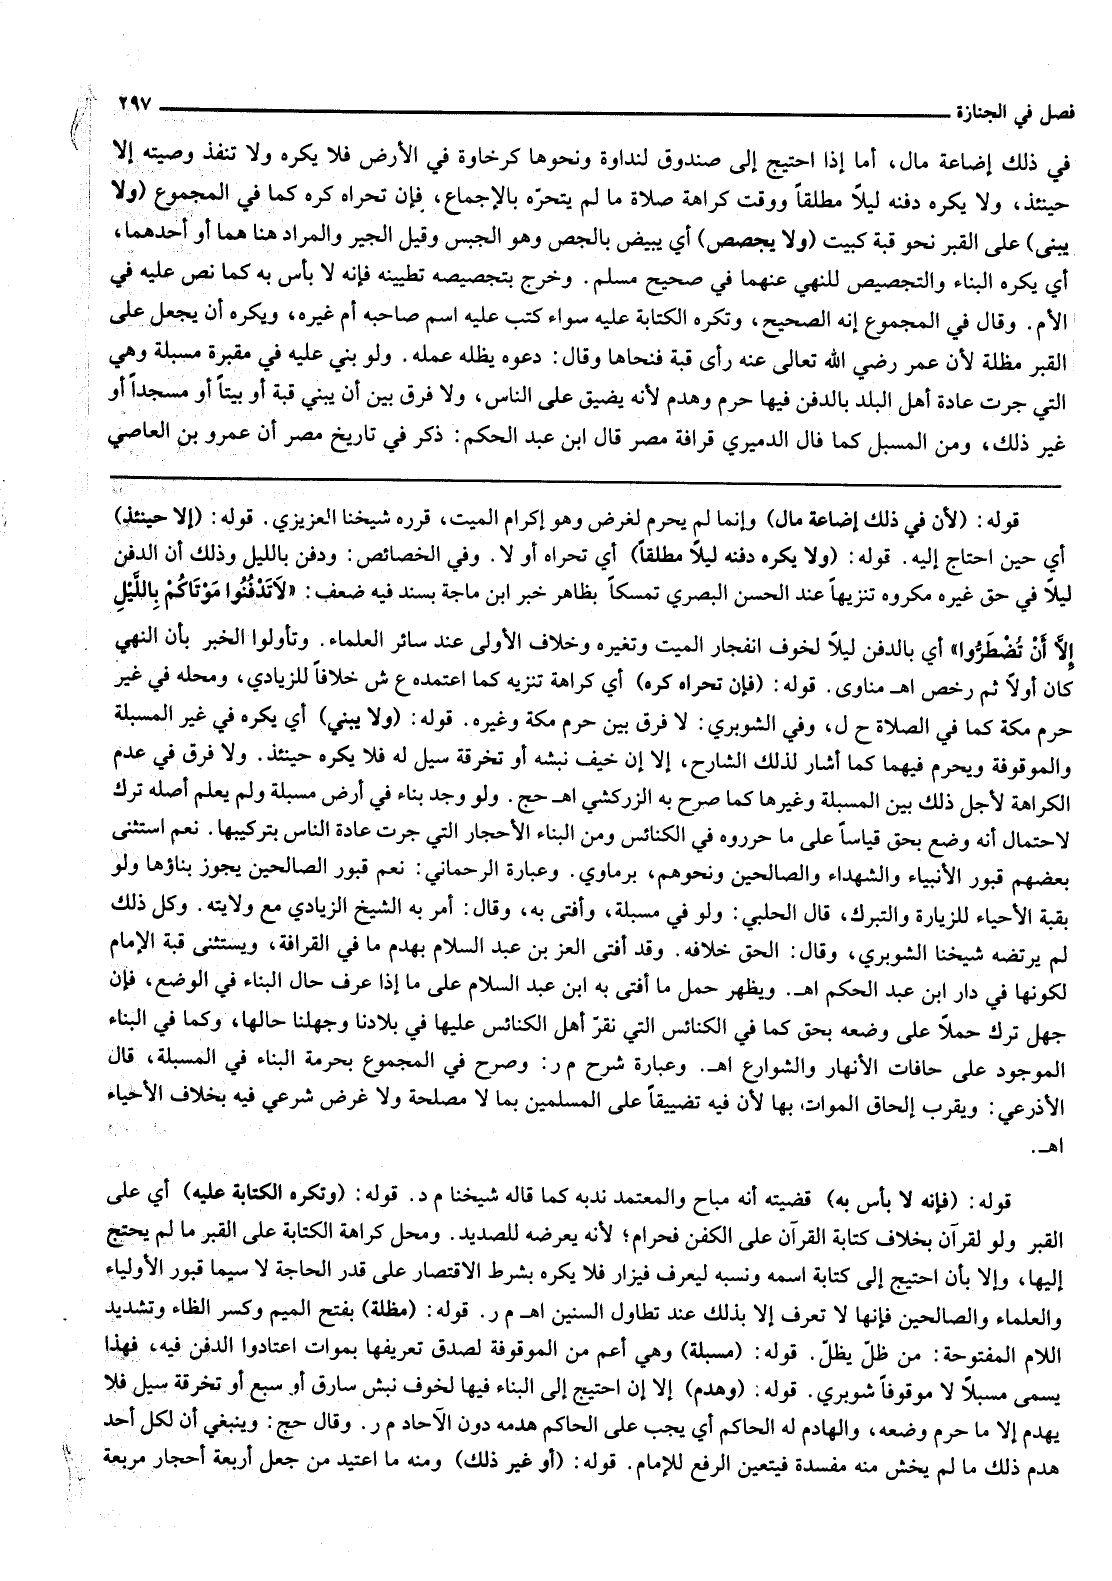 فصل في الجنازة ٢٩٧
في ذلك إضاعة مال، أما إذا احتيج إلى صندوق لنداوة ونحوها كرخاوة في الأرض فلا يكره ولا تنفذ وصيته إلا
حينئذ، ولا يكره دفنه ليلاً مطلقاً ووقت كراهة صلاة ما لم يتحرّه بالإجماع، فإن تحراه كره كما في المجموع (ولا
يبنى) على القبر نحو قبة كبيت (ولا يجصص) أي يبيض بالجص وهو الجبس وقيل الجير والمراد هنا هما أو أحدهما،
أي يكره البناء والتجصيص للنهي عنهما في صحيح مسلم. وخرج بتجصيصه تطيينه فإنه لا بأس به كما نص عليه في
الأم. وقال في المجموع إنه الصحيح، وتكره الكتابة عليه سواء كتب عليه اسم صاحبه أم غيره، ويكره أن يجعل على
القبر مظلة لأن عمر رضي الله تعالى عنه رأى قبة فنحاها وقال: دعوه يظله عمله. ولو بني عليه في مقبرة مسبلة وهي
التي جرت عادة أهل البلد بالدفن فيها حرم وهدم لأنه يضيق على الناس، ولا فرق بين أن يبني قبة أو بيتاً أو مسجداً أو
غير ذلك، ومن المسبل كما قال الدميري قرافة مصر قال ابن عبد الحكم: ذكر في تاريخ مصر أن عمرو بن العاصي
قوله: (لأن في ذلك إضاعة مال) وإنما لم يحرم لغرض وهو إكرام الميت، قرره شيخنا العزيزي. قوله: (إلا حينئذ)
أي حين احتاج إليه. قوله: (ولا يكره دفنه ليلاً مطلقاً) أي تحراه أو لا. وفي الخصائص: ودفن بالليل وذلك أن الدفن
ليلاً في حق غيره مكروه تنزيهاً عند الحسن البصري تمسكاً بظاهر خبر ابن ماجة بسند فيه ضعف: «لاَتَدْفُنُوا مَوْتَاكُمْ بِاللَّيْلِ
إِلاَّ أَنْ تُضْطَرُّوا» أي بالدفن ليلاً لخوف انفجار الميت وتغيره وخلاف الأولى عند سائر العلماء. وتأولوا الخبر بأن النهي
كان أولاً ثم رخص اهـ مناوى. قوله: (فإن تحراه كره) أي كراهة تنزيه كما اعتمده ع ش خلافاً للزيادي، ومحله في غير
حرم مكة كما في الصلاة ح ل، وفي الشوبري: لا فرق بين حرم مكة وغيره. قوله: (ولا يبني) أي يكره في غير المسبلة
والموقوفة ويحرم فيهما كما أشار لذلك الشارح، إلا إن خيف نبشه أو تخرقة سيل له فلا يكره حينئذ. ولا فرق في عدم
الكراهة لأجل ذلك بين المسبلة وغيرها كما صرح به الزركشي اهـ حج. ولو وجد بناء في أرض مسبلة ولم يعلم أصله ترك
لاحتمال أنه وضع بحق قياساً على ما حرروه في الكنائس ومن البناء الأحجار التي جرت عادة الناس بتركيبها. نعم استثنى
بعضهم قبور الأنبياء والشهداء والصالحين ونحوهم، برماوي. وعبارة الرحماني: نعم قبور الصالحين يجوز بناؤها ولو
بقبة الأحياء للزيارة والتبرك، قال الحلبي: ولو في مسبلة، وأفتى به، وقال: أمر به الشيخ الزيادي مع ولايته. وكل ذلك
لم يرتضه شيخنا الشوبري، وقال: الحق خلافه. وقد أفتى العز بن عبد السلام بهدم ما في القرافة، ويستثنى قبة الإمام
لكونها في دار ابن عبد الحكم اهـ. ويظهر حمل ما أفتى به ابن عبد السلام على ما إذا عرف حال البناء في الوضع، فإن
جهل ترك حملاً على وضعه بحق كما في الكنائس التي نقرّ أهل الكنائس عليها في بلادنا وجهلنا حالها، وكما في البناء
الموجود على حافات الأنهار والشوارع اهـ. وعبارة شرح م ر: وصرح في المجموع بحرمة البناء في المسبلة، قال
الأذرعي: ويقرب إلحاق الموات بها لأن فيه تضييقاً على المسلمين بما لا مصلحة ولا غرض شرعي فيه بخلاف الأحياء
اهـ.
قوله: (فإنه لا بأس به) قضيته أنه مباح والمعتمد ندبه كما قاله شيخنا م د. قوله: (وتكره الكتابة عليه) أي على
القبر ولو لقرآن بخلاف كتابة القرآن على الكفن فحرام؛ لأنه يعرضه للصديد. ومحل كراهة الكتابة على القبر ما لم يحتج
إليها، وإلا بأن احتيج إلى كتابة اسمه ونسبه ليعرف فيزار فلا يكره بشرط الاقتصار على قدر الحاجة لا سيما قبور الأولياء
والعلماء والصالحين فإنها لا تعرف إلا بذلك عند تطاول السنين اهـ م ر. قوله: (مظلة) بفتح الميم وكسر الظاء وتشديد
اللام المفتوحة: من ظلّ يظلّ. قوله: (مسبلة) وهي أعم من الموقوفة لصدق تعريفها بموات اعتادوا الدفن فيه، فهذا
يسمى مسبلاً لا موقوفاً شوبري. قوله: (وهدم) إلا إن احتيج إلى البناء فيها لخوف نبش سارق أو سبع أو تخرقة سيل فلا
يهدم إلا ما حرم وضعه، والهادم له الحاكم أي يجب على الحاكم هدمه دون الآحاد م ر. وقال حج: وينبغي أن لكل أحد
هدم ذلك ما لم يخش منه مفسدة فيتعين الرفع للإمام. قوله: (أو غير ذلك) ومنه ما اعتيد من جعل أربعة أحجار مربعة